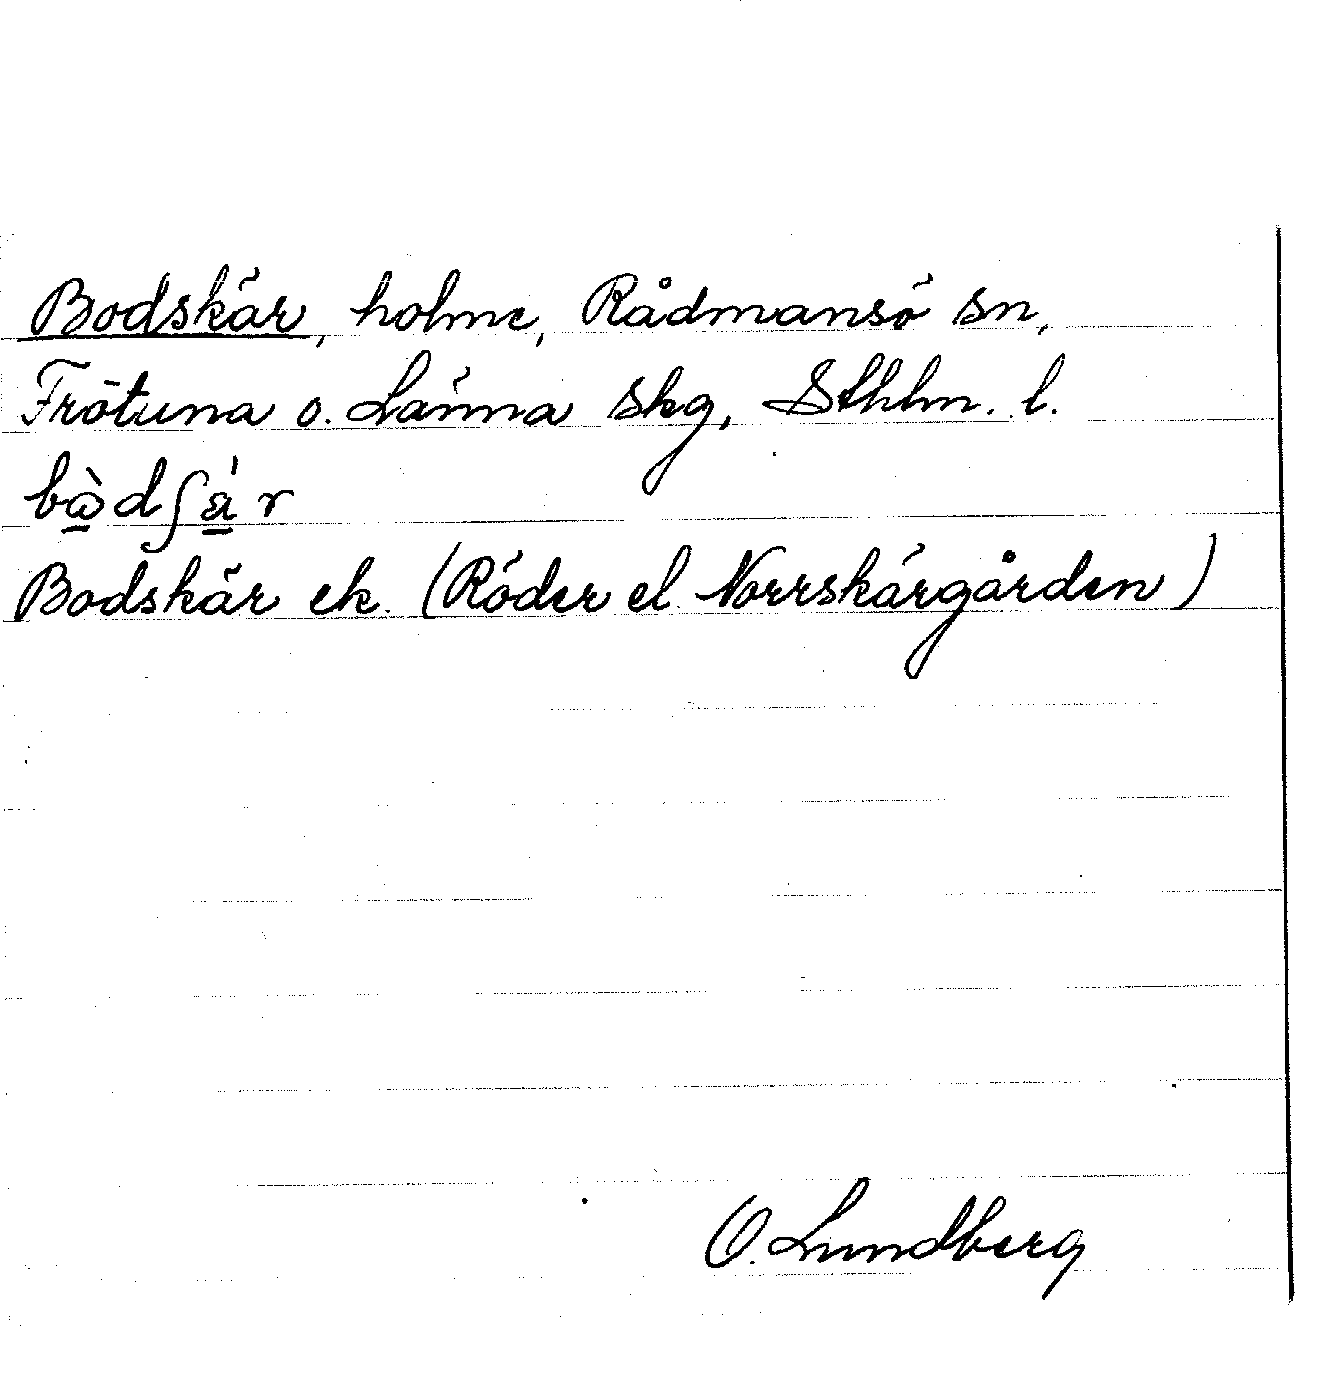 Bodskär, holme, Rådmansö sn,
Frötuna o. Länna skg, Sthlm. l.
bὼ̲dʃä̲́r
Bodskär ek. (Röder el. Norrskärgården)
O. Lundberg